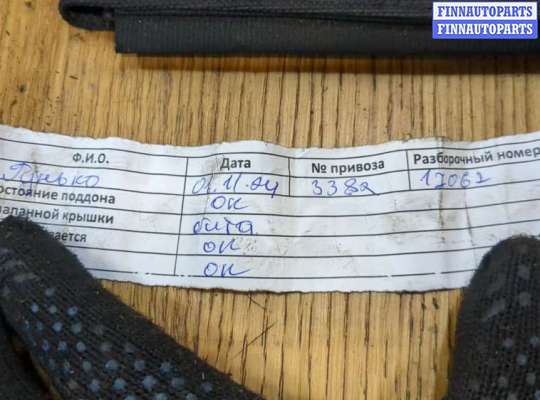 FINNAUTOPARTS
FINNAUTOPARTS
Ф.И.О. Дата № привоза Разборочный номер
01.11.24 338а 17062
остояние поддона ок
апанной крышки бита
ается ок
ок